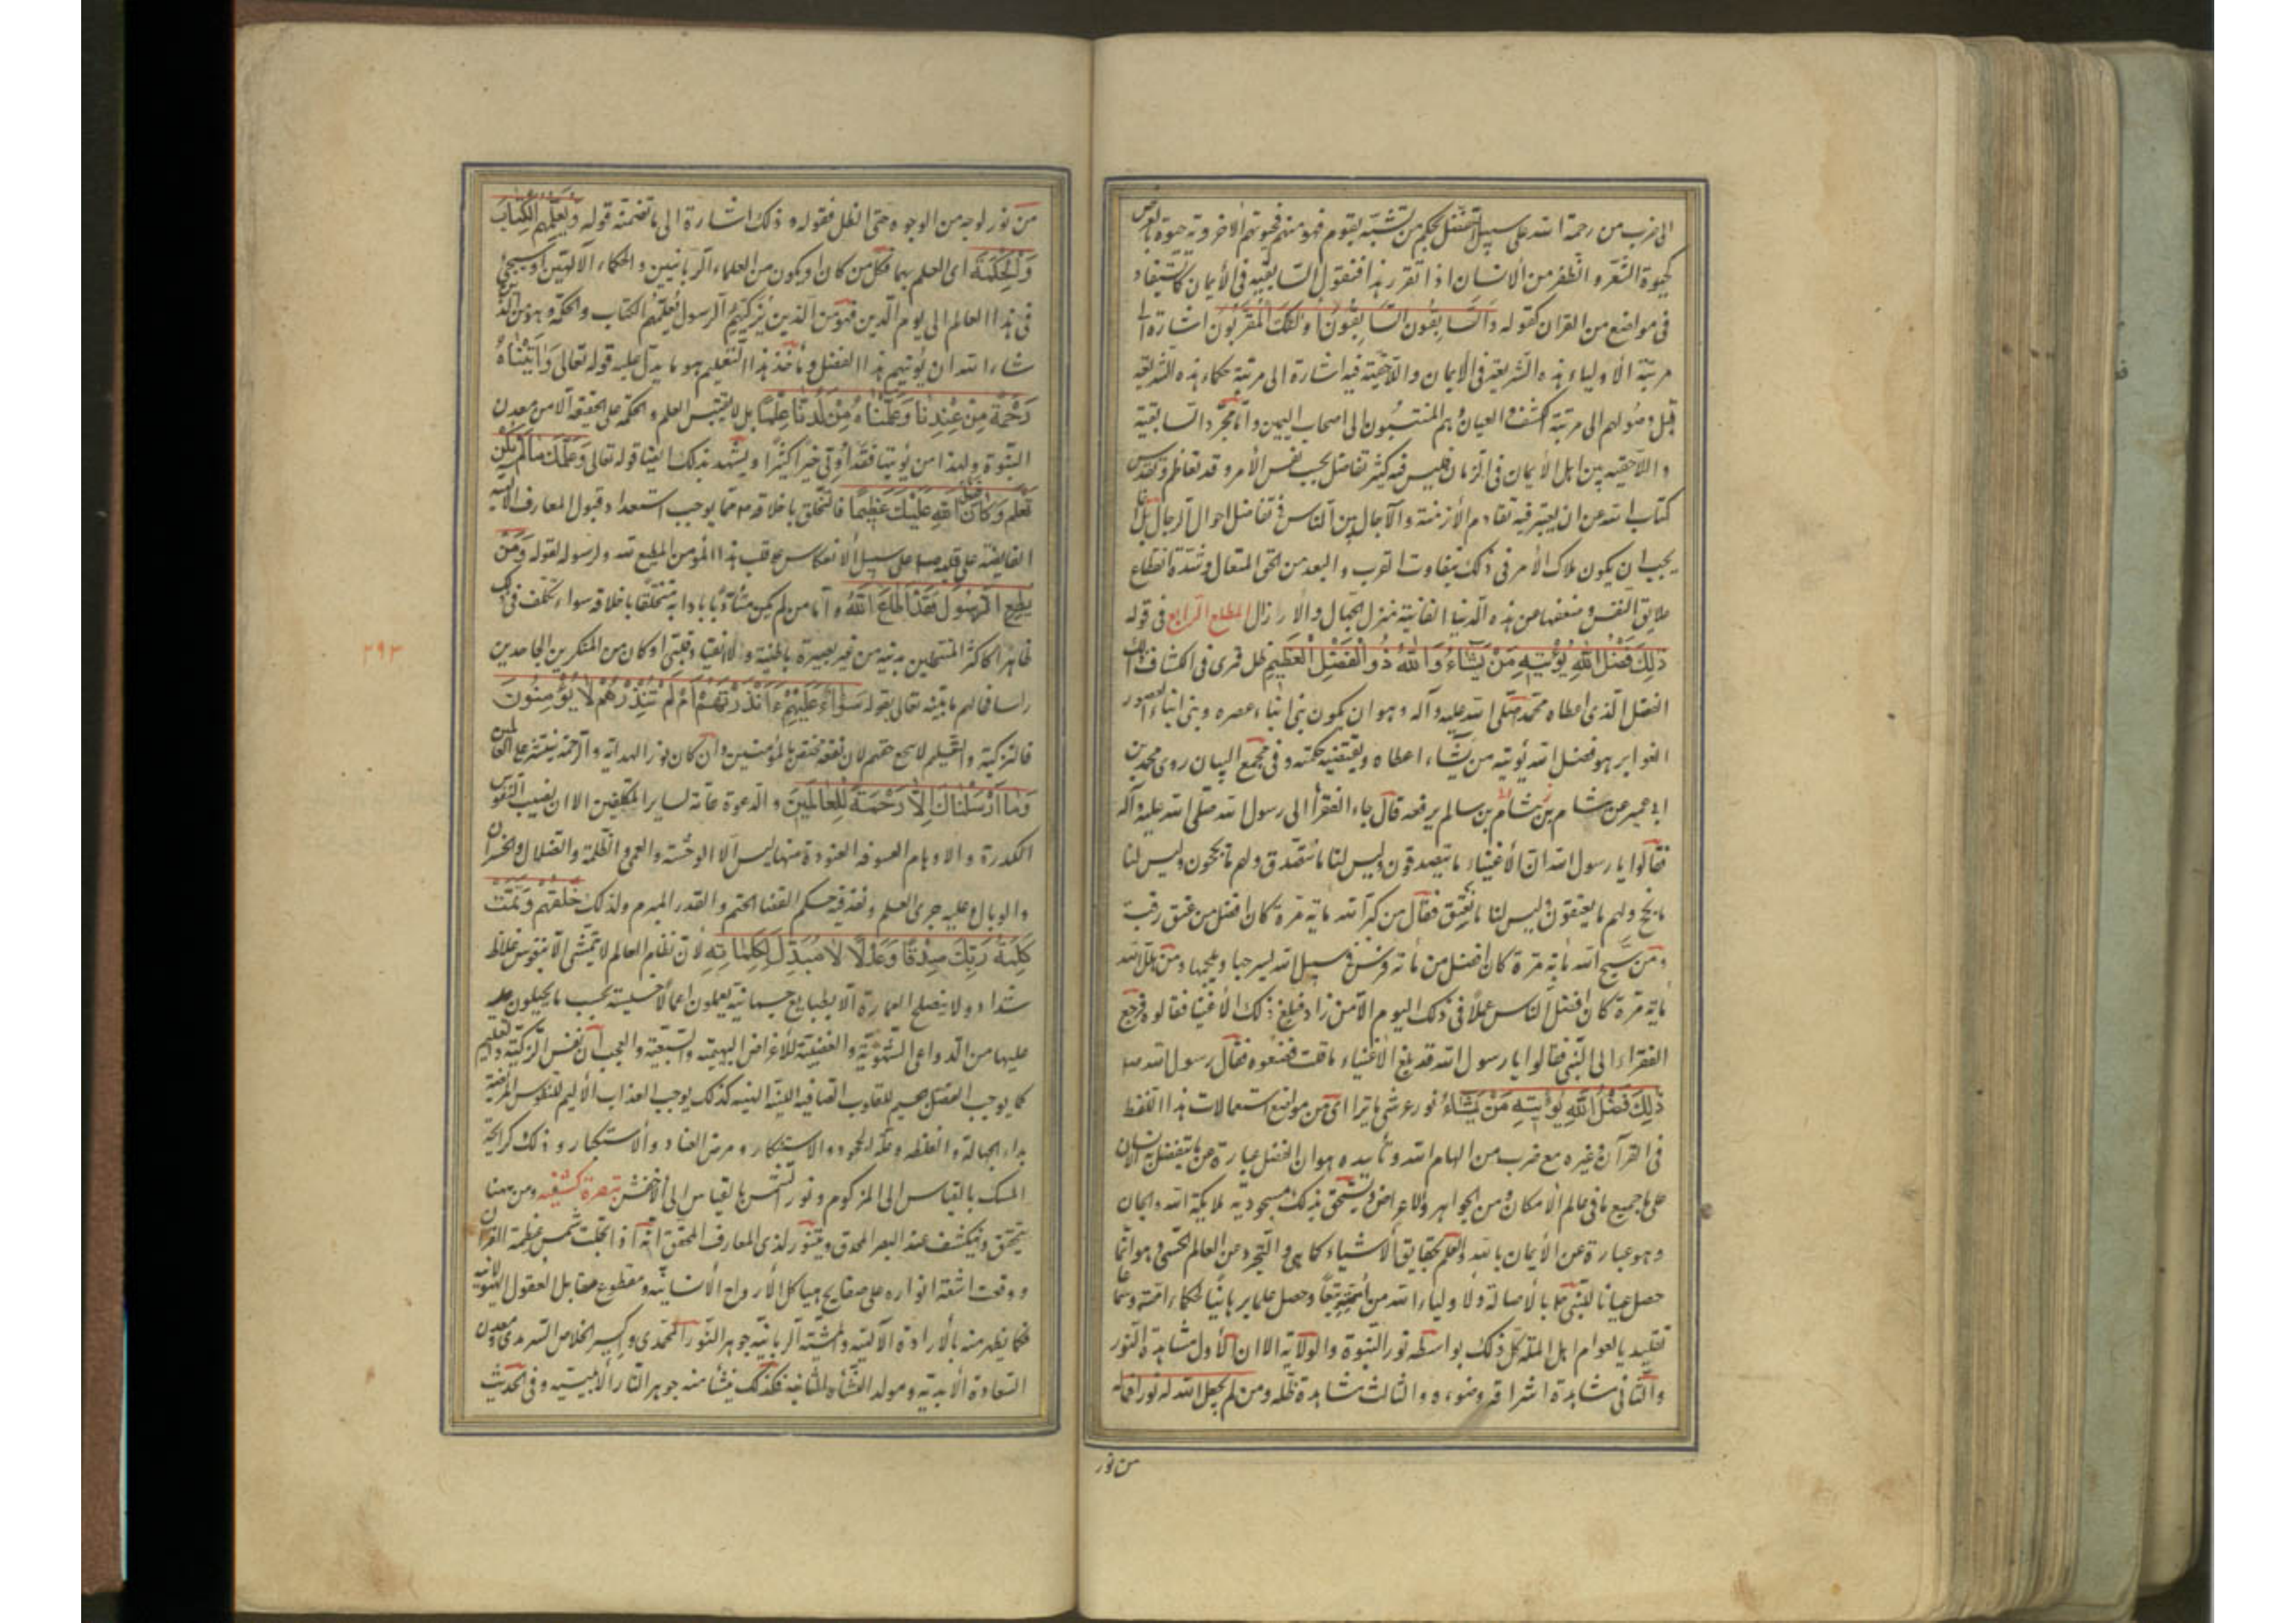 الى ضرب من رحمة الله على سبيل التفضل بحكم من تشبه بقوم فهو منهم فحيوتهم الأخروية حيوة بالعرض
كحيوة الشعر والظفر من الانسان اذا تقرر هذا فنقول السابقية في الأيمان كما يستفاد
في مواضع من القران كقوله والسابقون السابقون اولئك المقربون اشارة الى
مرتبة الأولياء هذه الشريعة في الأيمان واللاحقية فيه اشارة الى مرتبة حكماء هذه الشريعة
قبل وصولهم الى مرتبة الكشف والعيان وهم المنتسبون الى اصحاب اليمين واما مجرد السابقية
واللاحقية بين اهل الأيمان في الزمان فليس فيه كثير تفاضل بحسب نفس الأمر وقد تعاظم وتقدس
كتاب الله عن ان يعتبر فيه تقادم الأزمنة والآجال بين الناس في تفاضل احوال الرجال بل انما
يجب ان يكون ملاك الأمر في ذلك بتفاوت القرب والبعد من الحق المتعال وشدة انقطاع
علايق النفس وضعفها من هذه الدنيا الفانية منزل الجهال والأرازل المطلع الرابع في قوله
ذلك فضل الله يؤتيه من يشاء والله ذو الفضل العظيم ظل فرى في الكشاف ذلك
الفضل الذي اعطاه محمدا صلى الله عليه وآله وهو ان يكون نبي ابناء عصره ونبي ابناء العصور
الغوابر هو فضل الله يؤتيه من يشاء اعطاه ويقتضيه حكمته وفي مجمع البيان روى محمد بن
ابي عمير عن هشام بن سالم يرفعه قال جاء الفقراء الى رسول الله صلى الله عليه وآله
فقالوا يا رسول الله ان الأغنياء ما يتصدقون وليس لنا ما نتصدق ولهم ما يحجون وليس لنا
ما نحج ولهم ما يعتقون وليس لنا ما نعتق فقال من كبر الله مائة مرة كان افضل من عتق رقبة
ومن سبح الله مائة مرة كان افضل من مائة فرس في سبيل الله يسرجها ويلجمها ومن هلل الله
مائة مرة كان افضل الناس عملا في ذلك اليوم الا من زاد فبلغ ذلك الأغنياء فقالوه فرجع
الفقراء الى النبي فقالوا يا رسول الله قد بلغ الأغنياء ما قلت فصنعوه فقال رسول الله ص
ذلك فضل الله يؤتيه من يشاء نور عرشي ما يترااى من مواضع استعمالات هذا اللفظ
في القرآن وغيره مع ضرب من الهام الله وتأييده هو ان الفضل عبارة عما يتفضل به الانسان
على جميع ما في عالم الأمكان من الجواهر والأعراض ويستحق بذلك مسجودية ملايكة الله والجان
وهو عبارة عن الأيمان بالله والعلم بحقايق الأشياء كما هي والتجرد عن العالم الحسي وهو انما
حصل عيانا للنبي ص بالأصالة ولأولياء الله من امته تبعا وحصل علما برهانيا لحكماء امته وسماعا
تقليديا لعوام اهل الملة كل ذلك بواسطة نور النبوة والولاية الا ان الأول مشاهدة النور
والثاني مشاهدة اشراقه وضوءه والثالث مشاهدة ظله ومن لم يجعل الله له نورا فما له
من نور
من نور لوجه من الوجوه حتى الظل فقوله وذلك اشارة الى ما تضمنته قوله ويعلمهم الكتاب
والحكمة اى العلم بهما فكل من كان او يكون من العلماء الربانيين والحكماء الآلهيين او سيجئ
في هذا العالم الى يوم الدين فهو من الذين يزكيهم الرسول يعلمهم الكتاب والحكمة وهو من الذين
شاء الله ان يؤتيهم هذا الفضل ومأخذ هذا التعليم هو ما يدل عليه قوله تعالى واتيناه
رحمة من عندنا وعلمناه من لدنا علما بل لا يقتبس العلم والحكمة على الحقيقة الا من معدن
النبوة ولهذا من يؤتها فقد اوتي خيرا كثيرا ويشهد بذلك ايضا قوله تعالى وعلمك ما لم تكن
تعلم وكان فضل الله عليك عظيما فالتخلق باخلاقه ص مما يوجب استعداد قبول المعارف الآلهية
الفايضة على قلبه ص على سبيل الانعكاس على قلب هذا المؤمن المطيع لله ولرسوله لقوله ومن
يطع الرسول فقد اطاع الله واما من لم يكن متأدبا بادابه متخلقا باخلاقه سواء تكلف في ذلك
٢٩٣
ظاهرا كاكثر المنتحلين بدينه من غير بصيرة باطنية ولا انقياد قلبي او كان من المنكرين الجاحدين
راسا فحالهم ما بينه تعالى بقوله سواء عليهم ءانذرتهم ام لم تنذرهم لا يؤمنون
فالتزكية والتعليم لا يسع حقهم لان نفعه مختص بالمؤمنين وان كان نور الهداية والرحمة ينتشر على العالمين
وما ارسلناك الا رحمة للعالمين والدعوة عامة لساير المكلفين الا ان نصيب النفوس
الكدرة والاوهام العسوفة العنودة منها ليس الا الوحشة والعمى والظلمة والضلال والخسران
والوبال عليه جرى العلم ونفذ فيه حكم القضا الحتم والقدر المبرم ولذلك خلقهم وتمت
كلمة ربك صدقا وعدلا لا مبدل لكلماته لأن نظام العالم لا يتمشى الا بنفوس غلاظ
شداد ولا ينصلح العمارة الا بطبايع جسمانية يعملون اعمالا خسيسة بحسب ما يجبلون عليه
عليها من الدواعي الشهوية والغضبية للأغراض البهيمية والسبعية والعجب ان نفس التزكية والتعليم
كما يوجب الفضل الجسيم للقلوب الصافية اللينة كذلك يوجب العذاب الأليم للنفوس المريضة
بداء الجهالة والغلظة وعلة الجحود والاستنكار ومرض العناد والاستكبار وذلك كرائحة
المسك بالقياس الى المزكوم ونور الشمس بالقياس الى الأخفش تبصرة كشفية ومن هيهنا
يتحقق وينكشف عند البصر المحدق ويتنور لذى المعارف المحقق انه اذ اتجلت شمس عظمة القران
ووقعت اشعة انواره على صفايح هياكل الأرواح الانسانية ومقطوع مقابل العقول الهيولانية
فكما يظهر منه بالأرادة الآلهية والمشية الربانية جوهر النور المحمدى واكسير الخلاص السرمدى ومعدن
السعادة الأبدية ومولد النشأة الثانية فكذلك ينشأ منه جوهر النار الأبليسية وفى الحديث